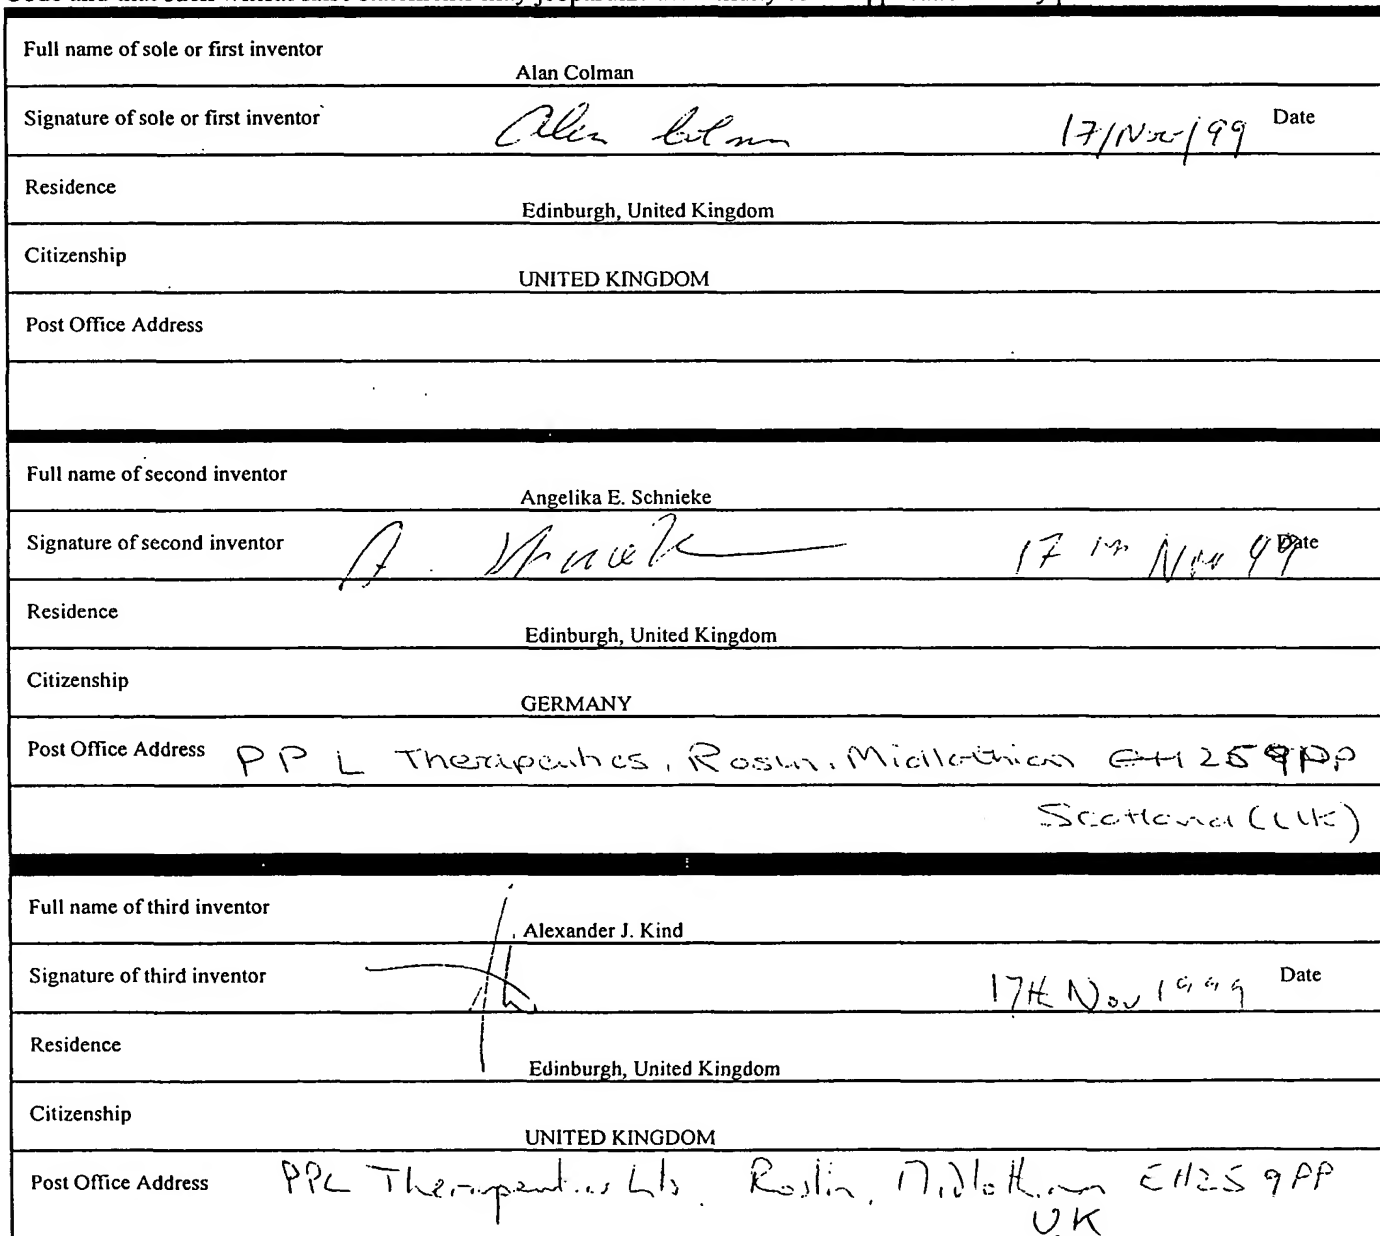 Full name of sole or first inventor
Alan Colman
Signature of sole or first inventor
Alan Colman 17/Nov/99 Date
Residence
Edinburgh, United Kingdom
Citizenship
UNITED KINGDOM
Post Office Address
Full name of second inventor
Angelika E. Schnieke
Signature of second inventor
A. Schnieke 17th Nov 99 Date
Residence
Edinburgh, United Kingdom
Citizenship
GERMANY
Post Office Address PPL Therapeutics, Roslin, Midlothian EH25 9PP
Scotland (UK)
Full name of third inventor
Alexander J. Kind
Signature of third inventor
17th Nov 1999 Date
Residence
Edinburgh, United Kingdom
Citizenship
UNITED KINGDOM
Post Office Address PPL Therapeutics Roslin, Midlothian EH25 9PP
UK